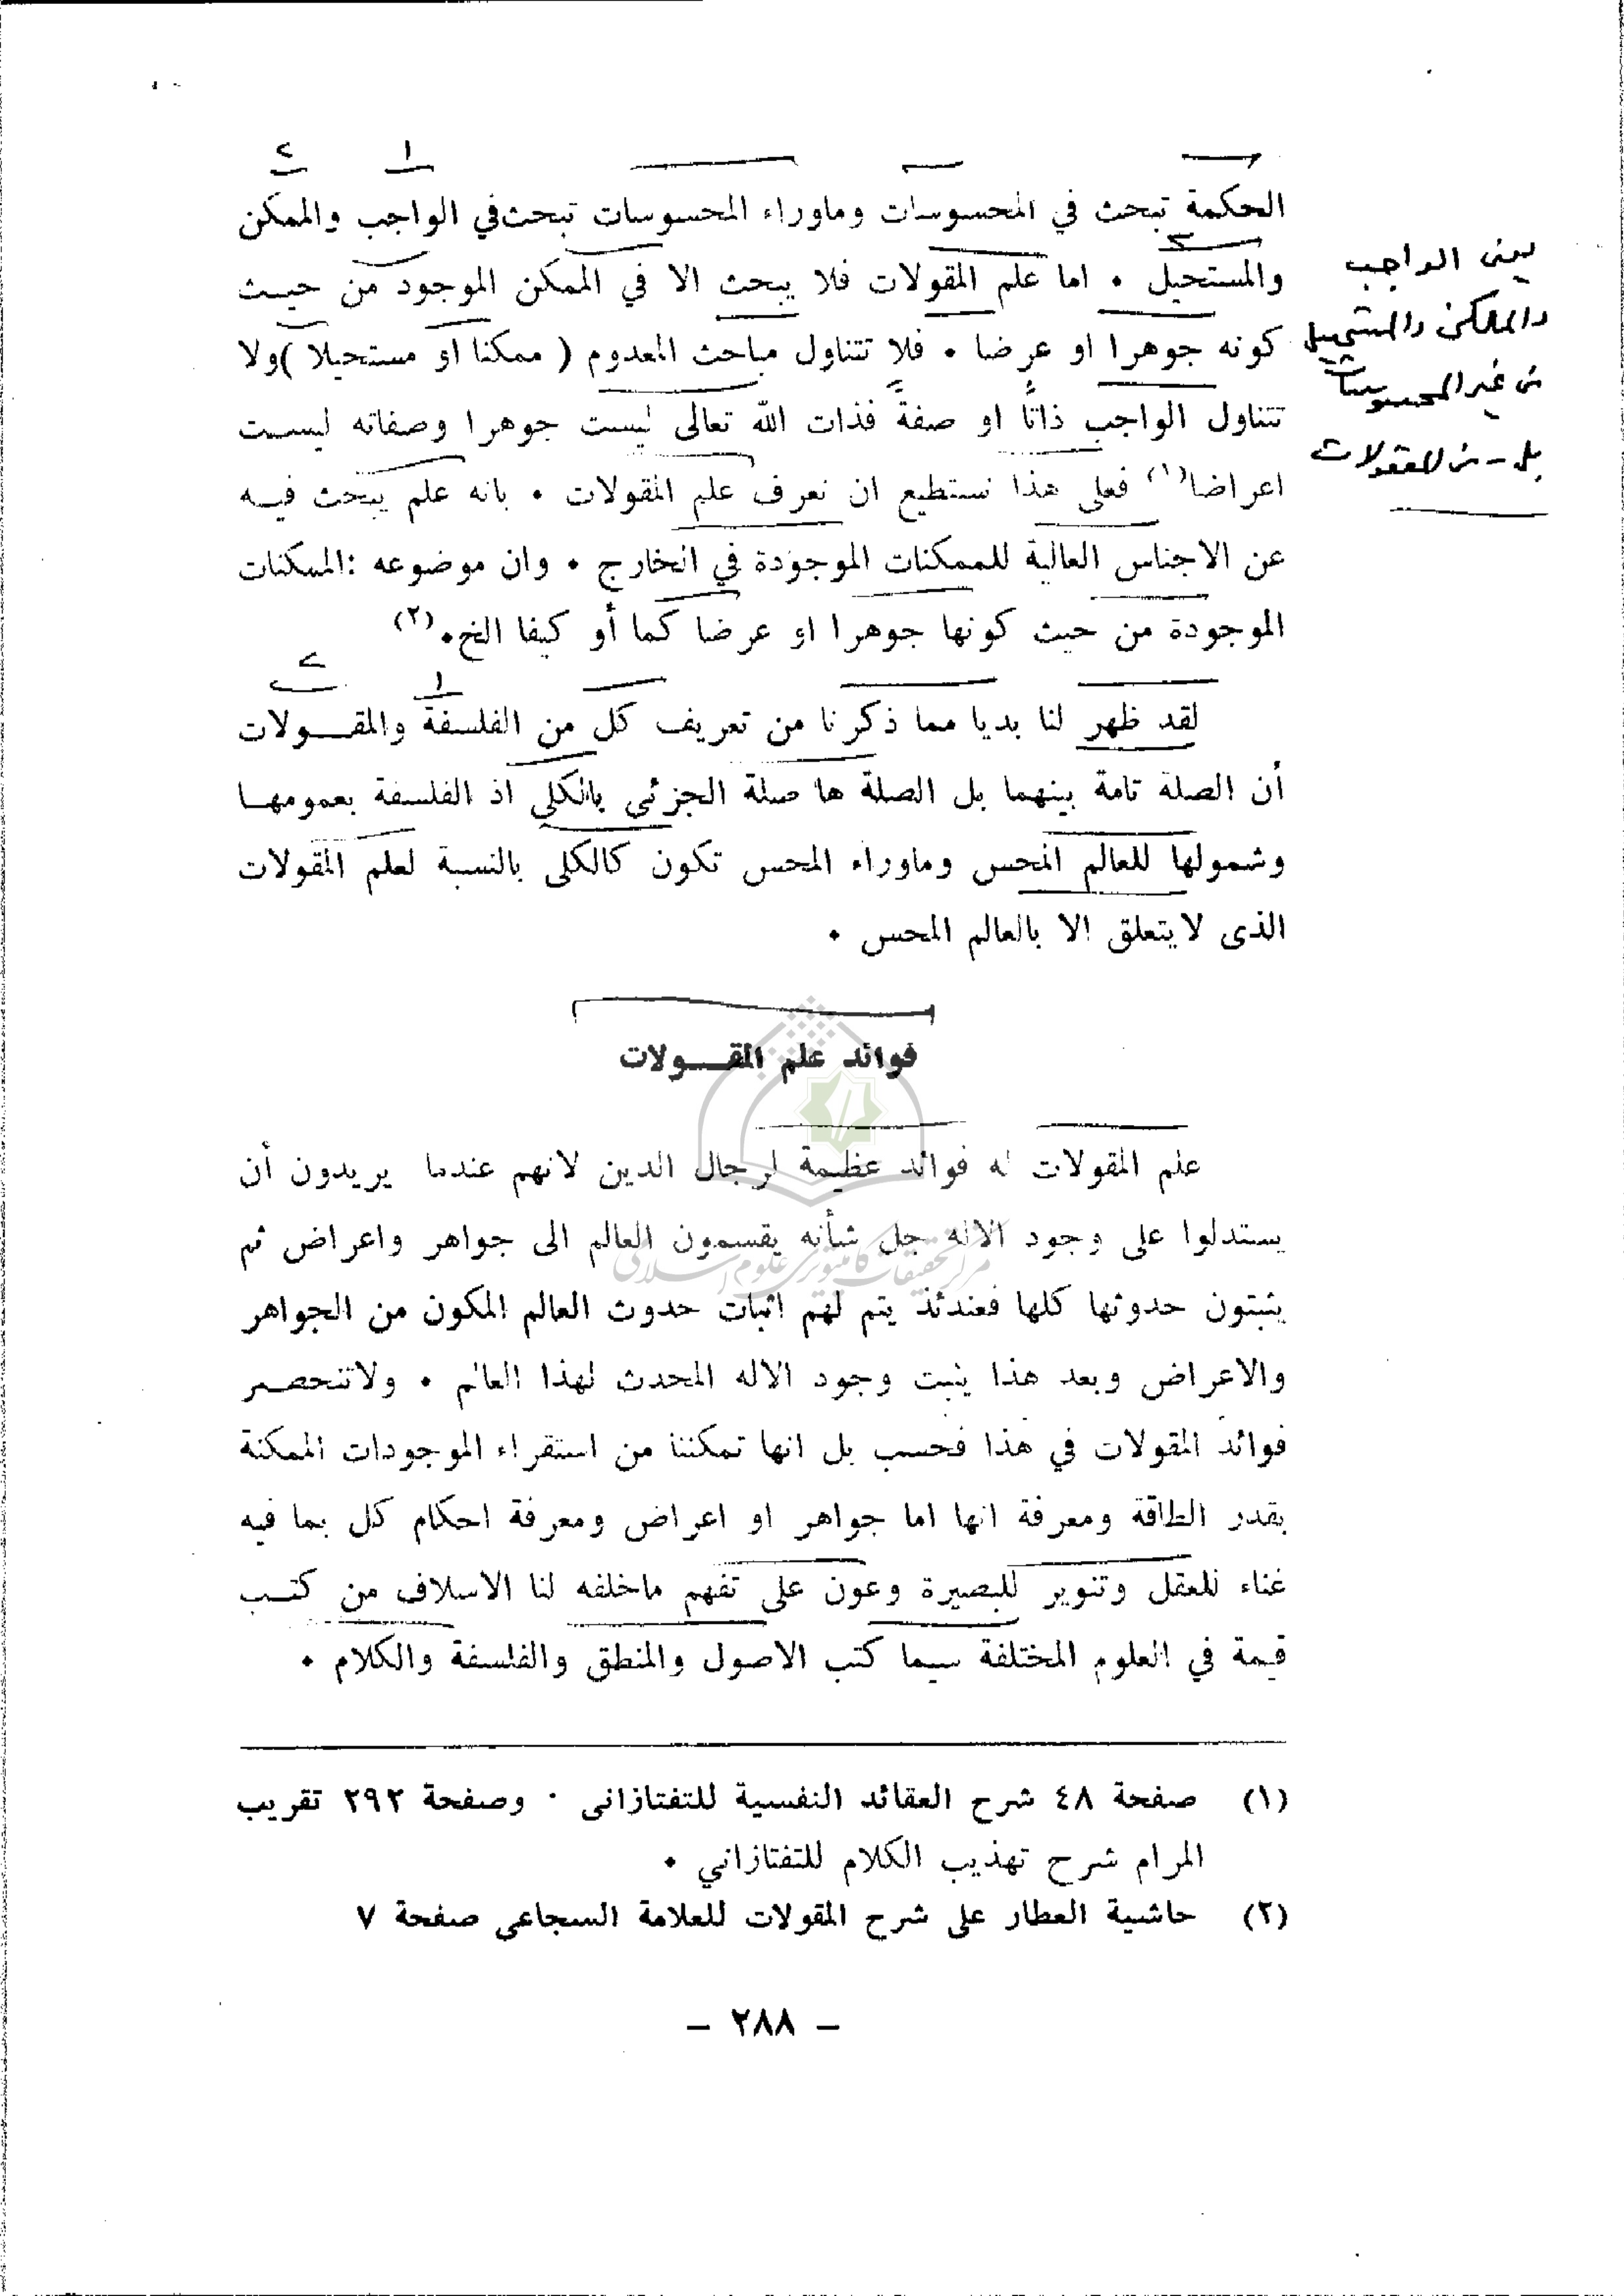 الحكمة تبحث في المحسوسات وماوراء المحسوسات تبحث في الواجب والممكن
والمستحيل ٠ اما علم المقولات فلا يبحث الا في الممكن الموجود من حيـث
كونه جوهرا او عرضا ٠ فلا تتناول مباحث المعدوم ( ممكنا او مستحيلا )ولا
تتناول الواجب ذاتا او صفة فذات الله تعالى ليست جوهرا وصفاته ليسـت
اعراضا(١) فعلى هذا نستطيع ان نعرف علم المقولات ٠ بانه علم يبحث فيـه
عن الاجناس العالية للممكنات الموجودة في الخارج ٠ وان موضوعه :الممكنات
الموجودة من حيث كونها جوهرا او عرضا كما أو كيفا الخ٠(٢)
يعنى الواجب
والممكن والمستحيل
من غير المحسوسات
بل - من المعقولات
لقد ظهر لنا بديا مما ذكرنا من تعريف كل من الفلسفة والمقـــولات
أن الصلة تامة بينهما بل الصلة ها صلة الجزئي بالكلي اذ الفلسفة بعمومهـا
وشمولها للعالم المحس وماوراء المحس تكون كالكلى بالنسبة لعلم المقولات
الذى لايتعلق الا بالعالم المحس ٠
فوائد علم المقـــولات
علم المقولات له فوائد عظيمة لرجال الدين لانهم عندما يريدون أن
يستدلوا على وجود الاله جل شأنه يقسمون العالم الى جواهر واعراض ثم
يثبتون حدوثها كلها فعندئذ يتم لهم اثبات حدوث العالم المكون من الجواهر
والاعراض وبعد هذا يثبت وجود الاله المحدث لهذا العالم ٠ ولاتنحصـر
فوائد المقولات في هذا فحسب بل انها تمكننا من استقراء الموجودات الممكنة
بقدر الطاقة ومعرفة انها اما جواهر او اعراض ومعرفة احكام كل بما فيه
غناء للعقل وتنوير للبصيرة وعون على تفهم ماخلفه لنا الاسلاف من كتـب
قيمة في العلوم المختلفة سيما كتب الاصول والمنطق والفلسفة والكلام ٠
مركز تحقيقات كامپيوترى علوم اسلامى
(١) صفحة ٤٨ شرح العقائد النفسية للتفتازانى ٠ وصفحة ٢٩٢ تقريب
المرام شرح تهذيب الكلام للتفتازاني ٠
(٢) حاشية العطار على شرح المقولات للعلامة السجاعى صفحة ٧
– ٢٨٨ –